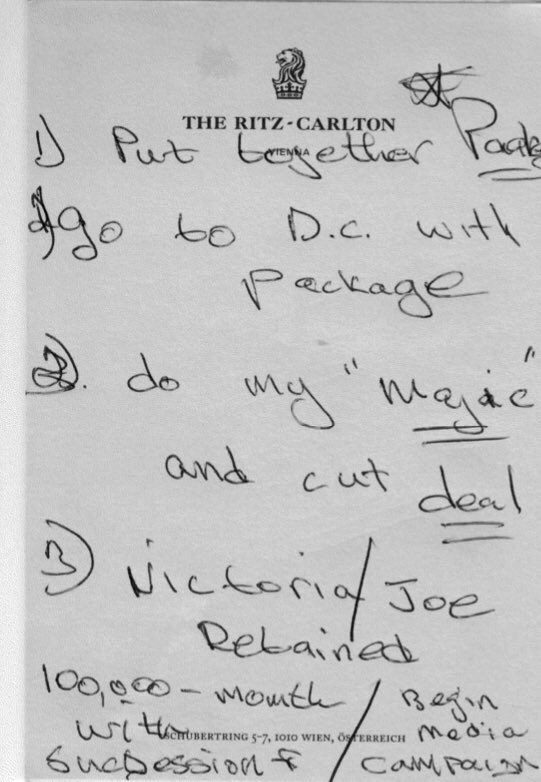 THE RITZ-CARLTON
VIENNA
1) Put together
go to D.C. with
package
2). do my "magic"
and cut deal
3) Victoria/Joe
Retained
100,000 - month / Begin
with media
SCHUBERTRING 5-7, 1010 WIEN, ÖSTERREICH
campaign